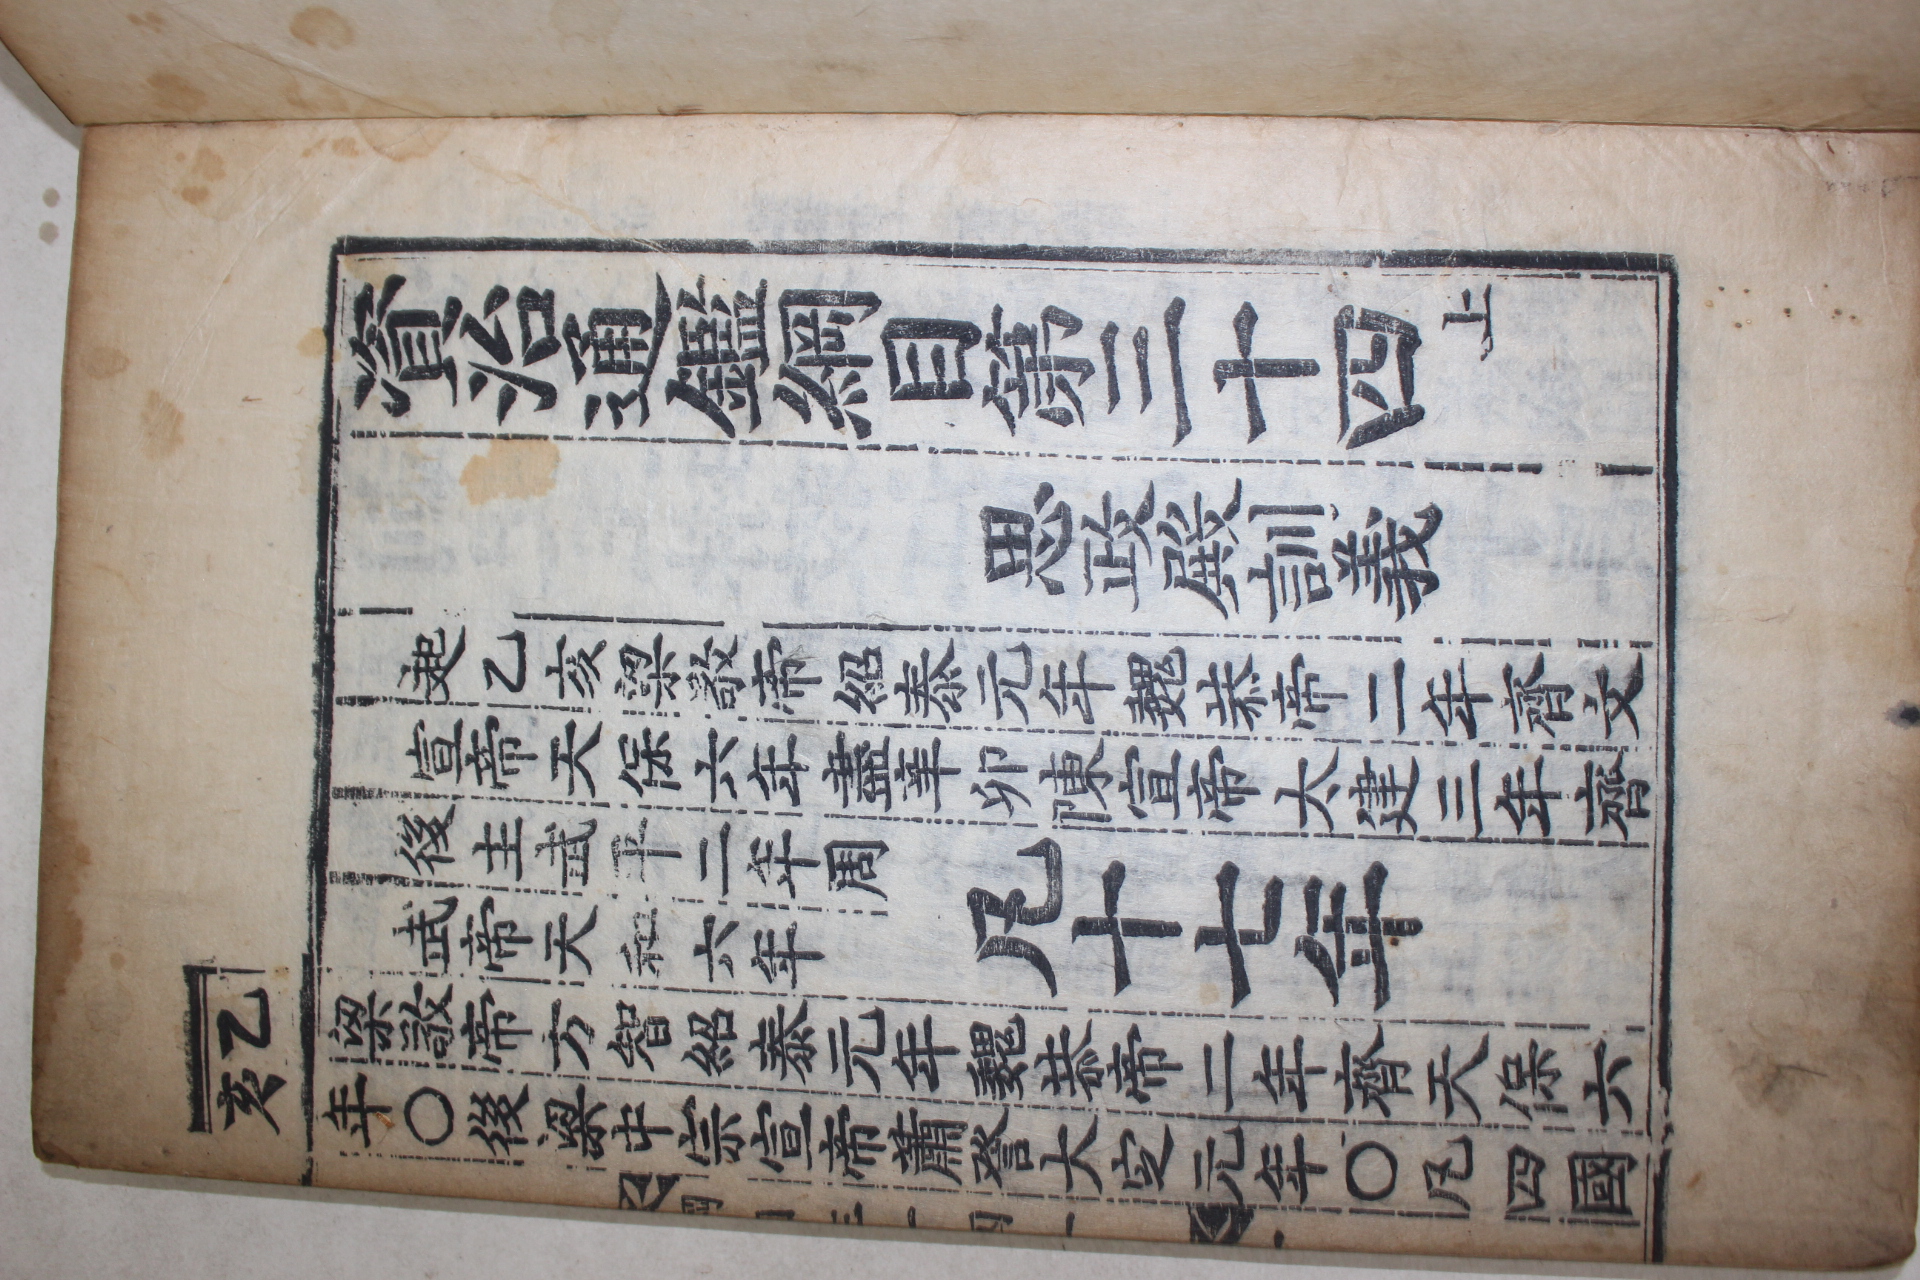 資治通鑑綱目第三十四上
思政殿訓義
起乙亥梁敬帝紹泰元年魏恭帝二年齊文
宣帝天保六年盡辛卯陳宣帝太建三年齊
後主武平二年周
武帝天和六年
凡十七年
乙亥
梁敬帝方智紹泰元年魏恭帝二年齊天保六
年○後梁中宗宣帝蕭詧大定元年○凡四國